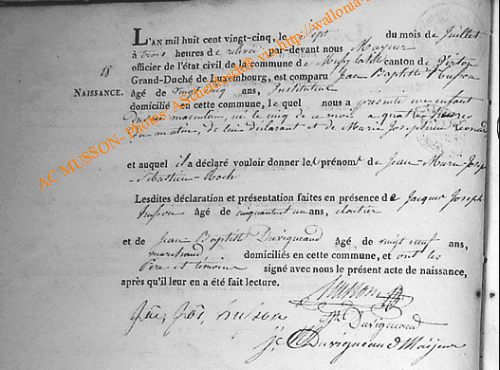 L'AN mil huit cent vingt-cinq, le sept du mois de Juillet
à trois heures de relevée par-devant nous Mayeur
officier de l'état civil de la commune de canton de Virton
18
Grand-Duché de Luxembourg, est comparu Jean Baptiste
NAISSANCE. Agé de vingt cinq ans, Instituteur
domicilié en cette commune, lequel nous a présenté un enfant
du sexe masculin, né le cinq de ce mois a quatre heures
du matin, de lui déclarant et de Marie Josephine Leonard
et auquel il a déclaré vouloir donner les prénoms de Jean-Marie Joseph
Sébastien-Roch
Lesdites déclaration et présentation faites en présence de Jacques Joseph
âgé de cinquante un ans, cloutier
et de Jean Baptiste Duvigneaud âgé de vingt neuf ans,
marchand, domiciliés en cette commune, et ont les
Père et témoins signé avec nous le présent acte de naissance,
après qu'il leur en a été fait lecture.
Duvigneaud
Duvigneaud Maijeur
AC MUSSON- Photos http://wallonia